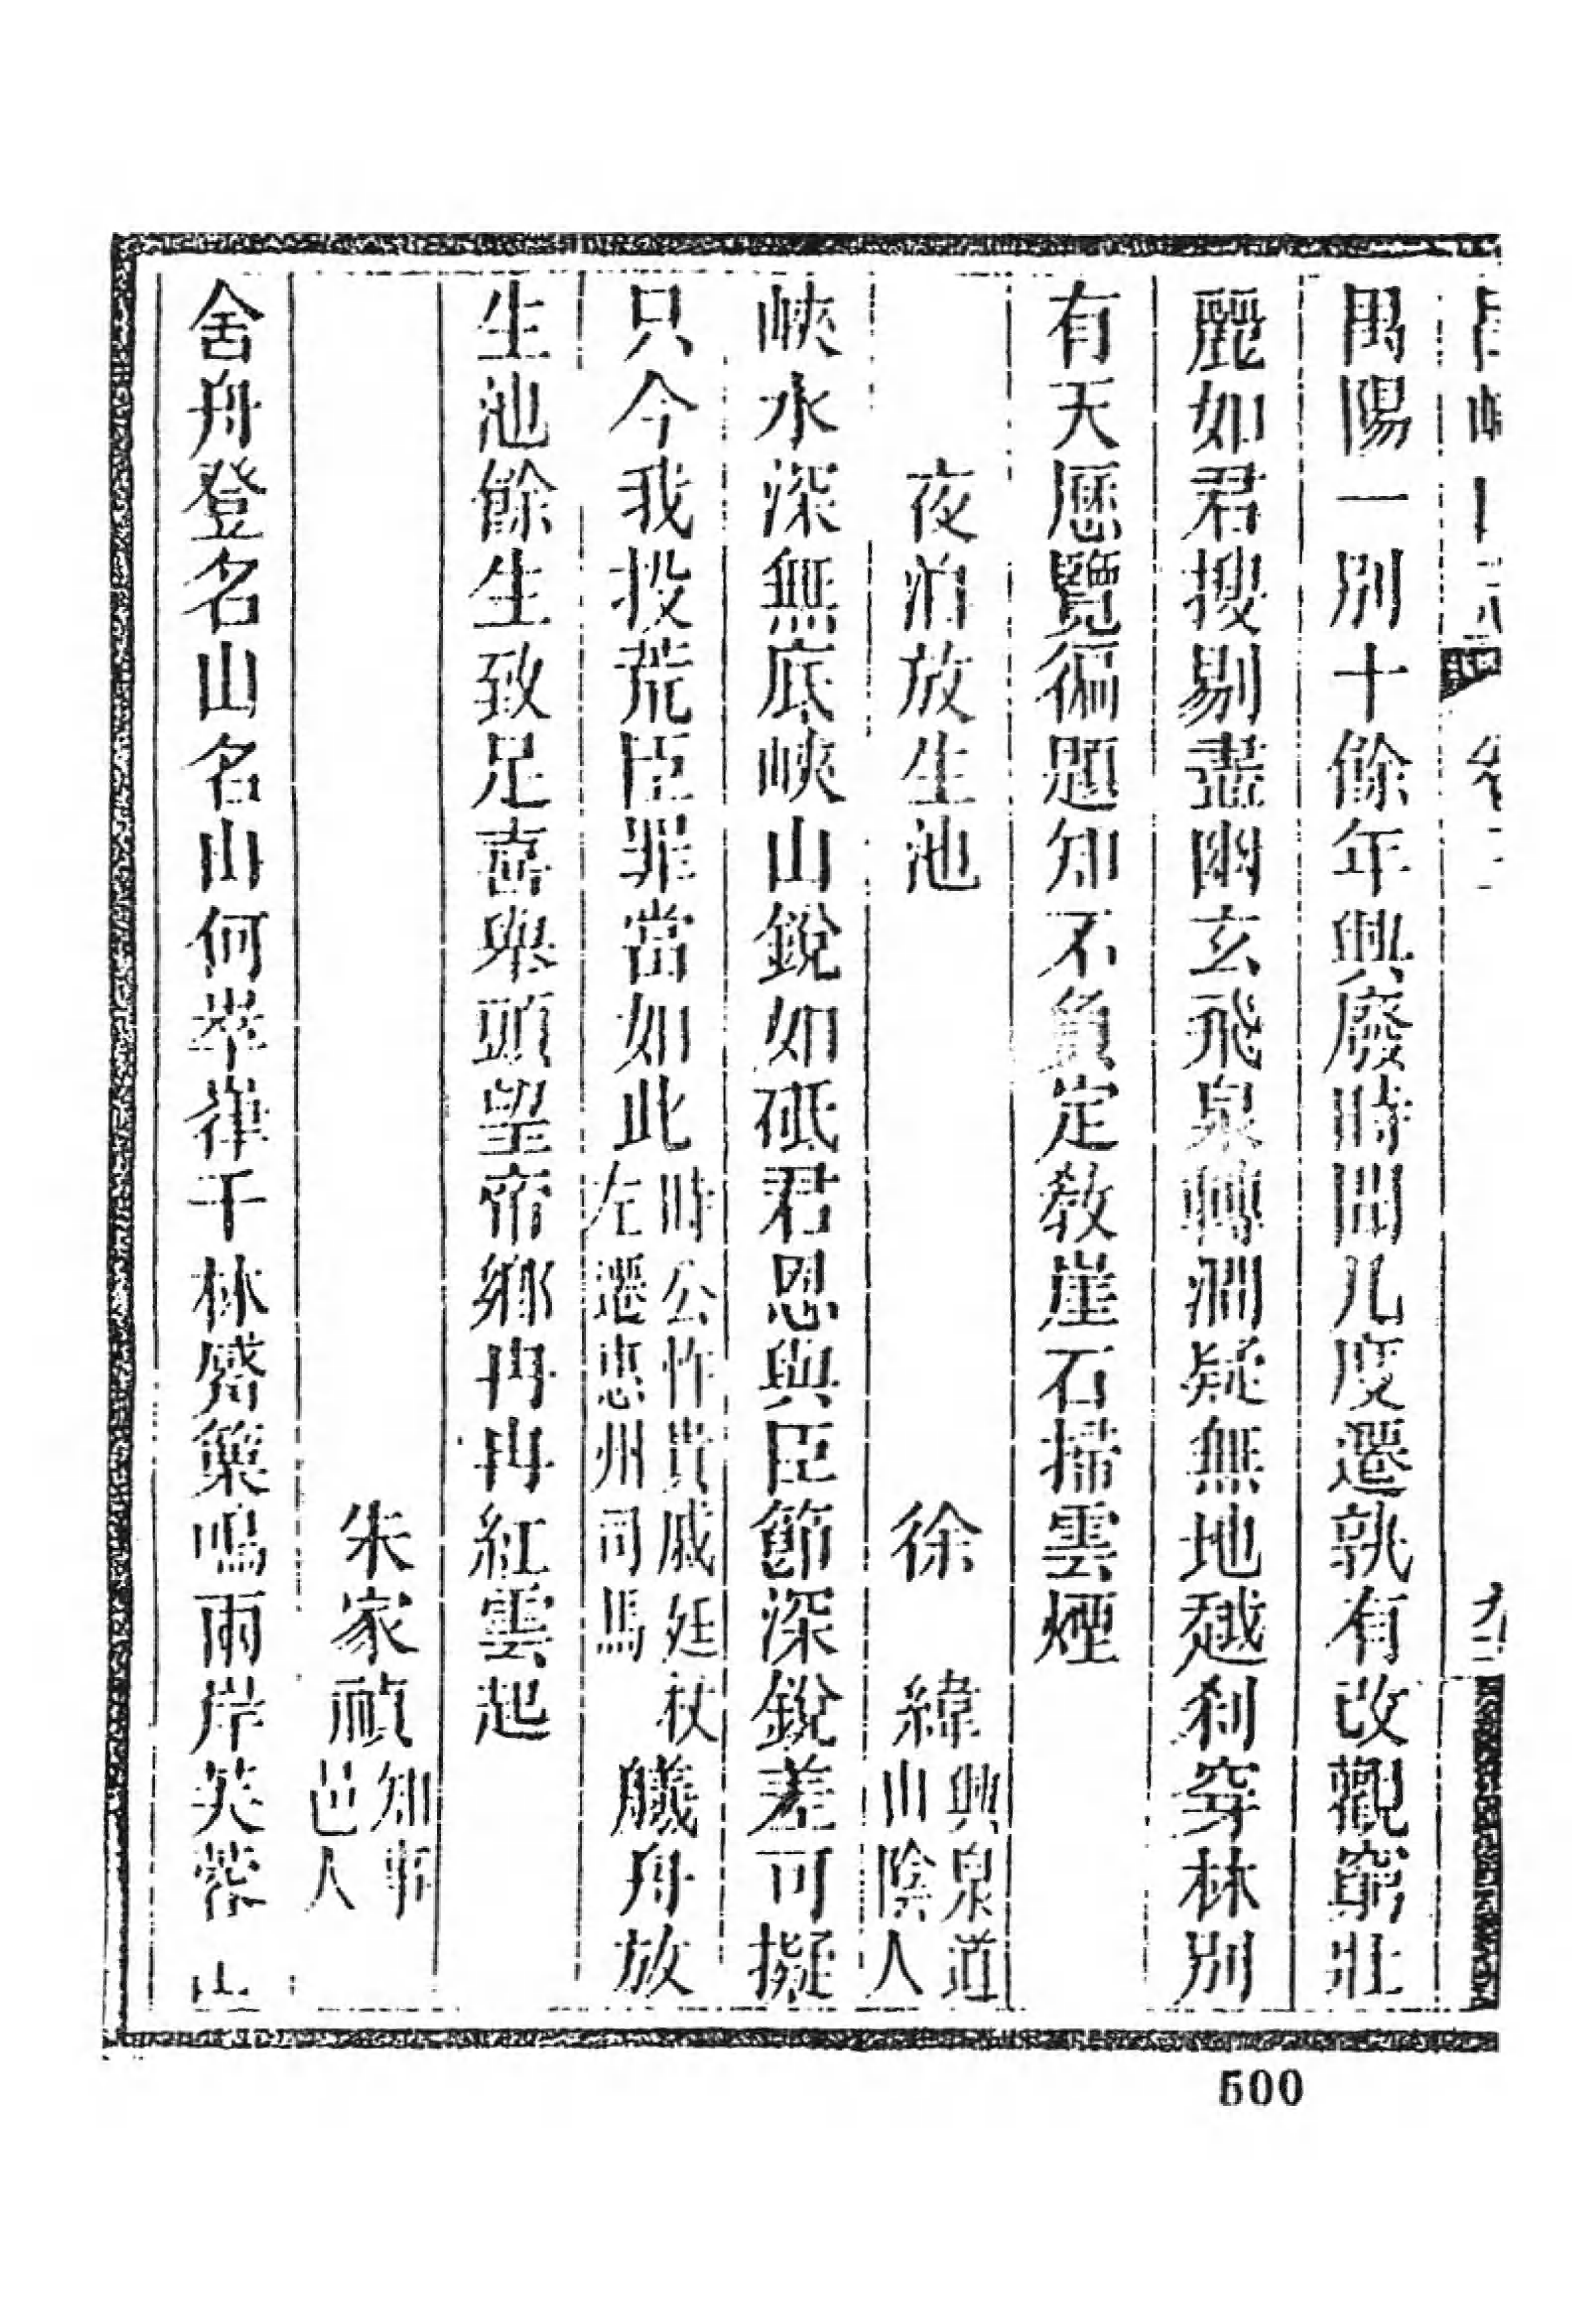 禺陽一別十餘年興廢時聞几度遷孰有改觀窮壯
麗如君搜剔盡幽玄飛泉轉澗疑無地越刹穿林別
有天歷覽徧題知不負定教崖石掃雲煙
夜泊放生池 徐緯 興泉道山陰人
峽水深無底峽山銳如砥君恩與臣節深銳差可擬
只今我投荒臣罪當如此 時公忤貴戚廷杖左遷惠州司馬 艤舟放
生池餘生致足喜舉頭望帝鄉冉冉紅雲起
朱家禎 知事邑人
舍舟登名山名山何崒嵂千林齊葉鳴雨岸芙蓉
500